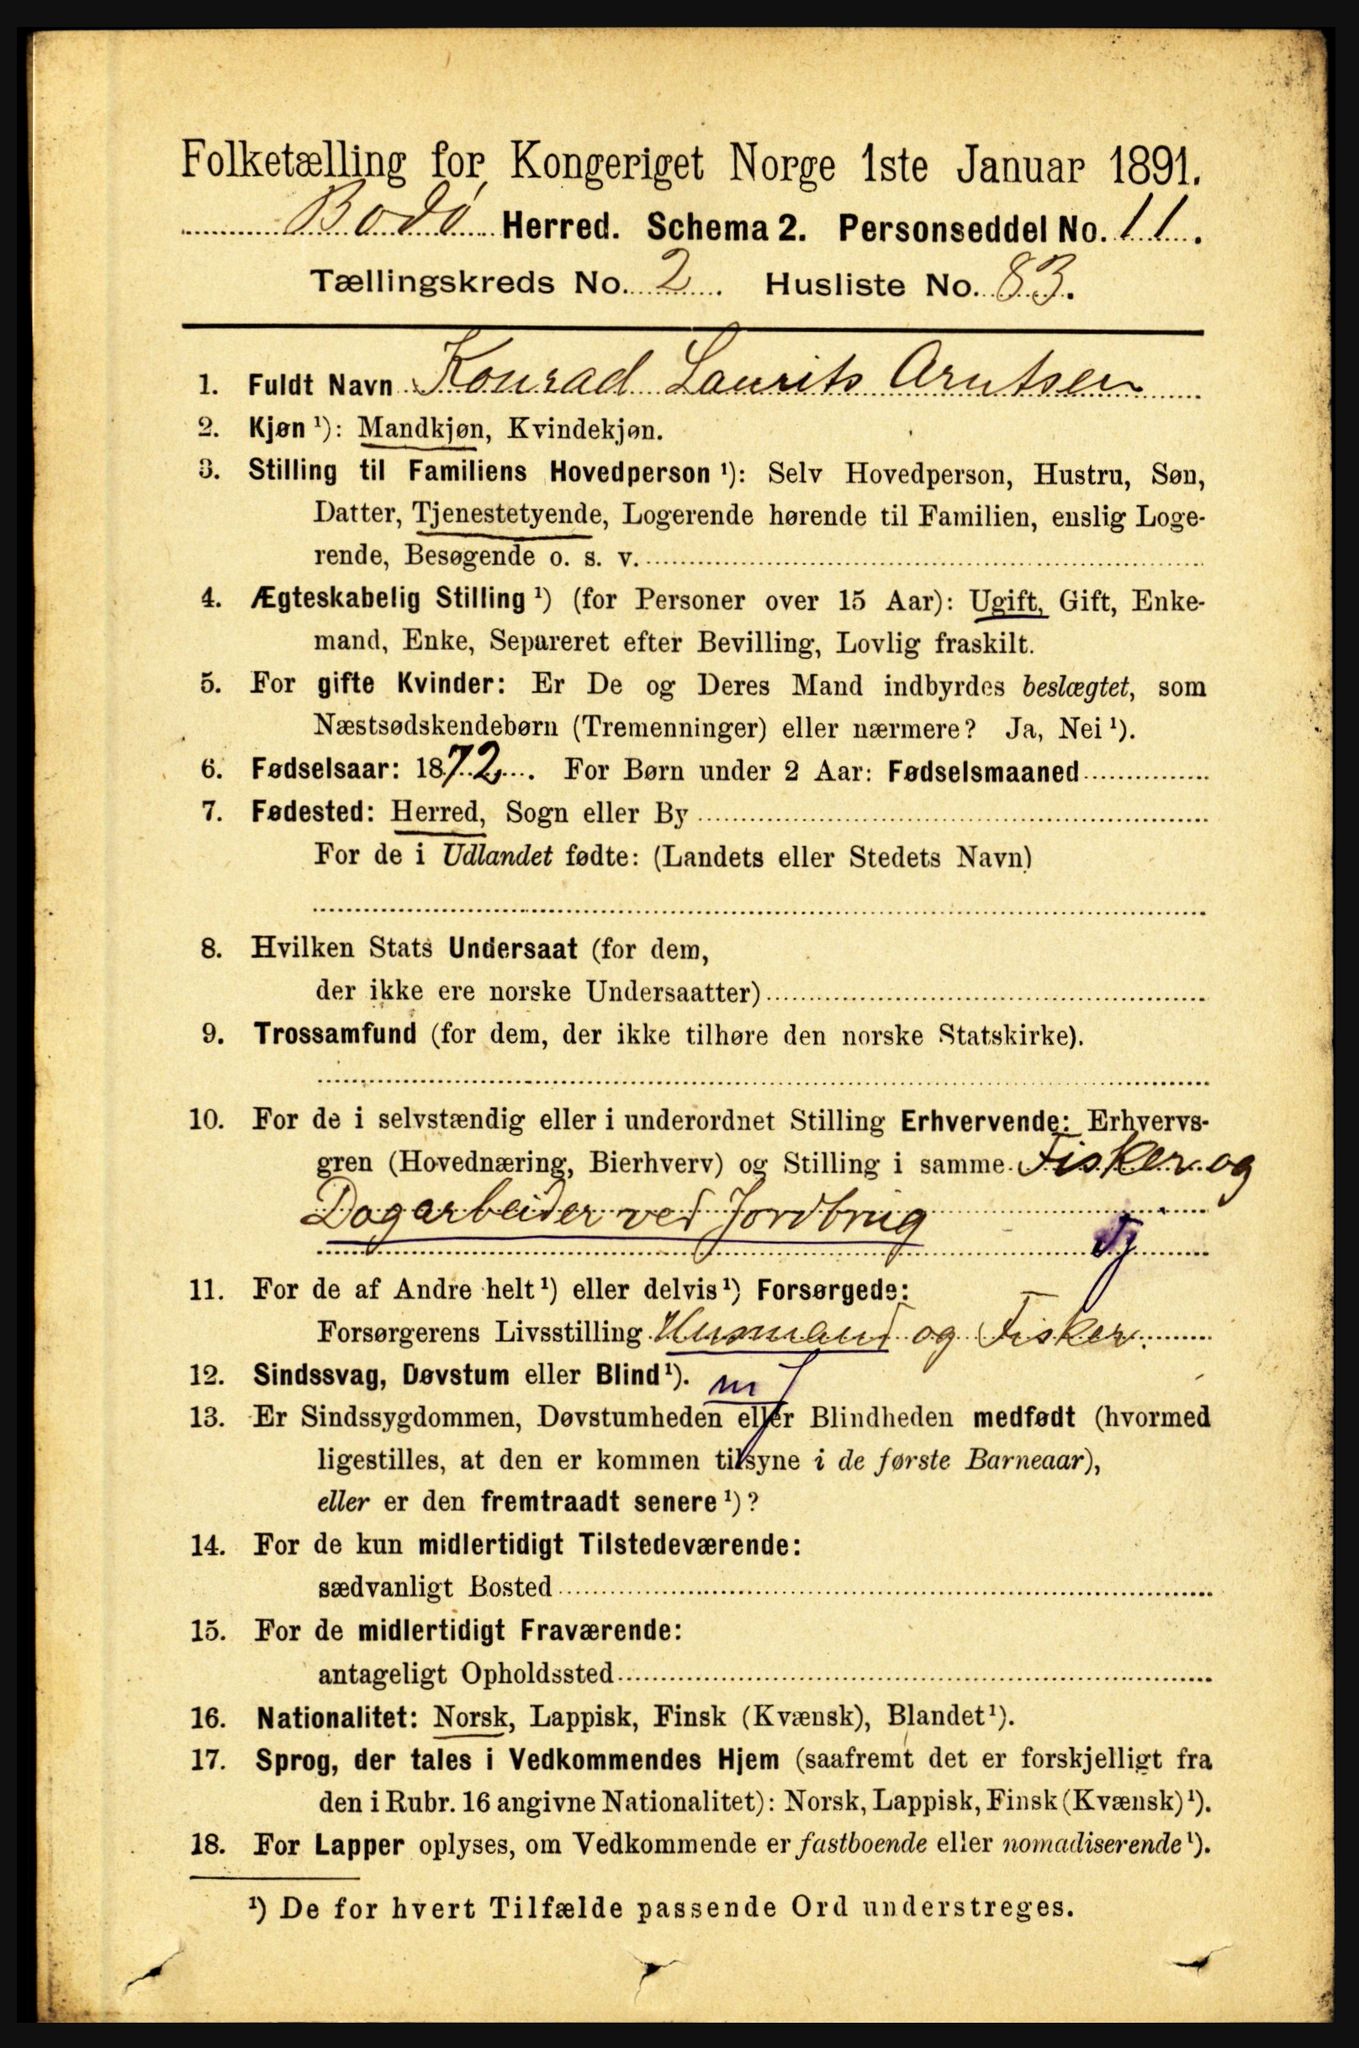 Folketælling for Kongeriget Norge 1ste Januar 1891.
Bodø Herred. Schema 2. Personseddel No. 11.
Tællingskreds No. 2. Husliste No. 83.
1. Fuldt Navn Konrad Laurits Arntsen
2. Kjøn ¹): Mandkjøn, Kvindekjøn.
3. Stilling til Familiens Hovedperson ¹): Selv Hovedperson, Hustru, Søn,
Datter, Tjenestetyende, Logerende hørende til Familien, enslig Loge-
rende, Besøgende o. s. v.
4. Ægteskabelig Stilling ¹) (for Personer over 15 Aar): Ugift, Gift, Enke-
mand, Enke, Separeret efter Bevilling, Lovlig fraskilt.
5. For gifte Kvinder: Er De og Deres Mand indbyrdes beslægtet, som
Næstsødskendebørn (Tremenninger) eller nærmere? Ja, Nei ¹).
6. Fødselsaar: 1872. For Børn under 2 Aar: Fødselsmaaned
7. Fødested: Herred, Sogn eller By
For de i Udlandet fødte: (Landets eller Stedets Navn)
8. Hvilken Stats Undersaat (for dem,
der ikke ere norske Undersaatter)
9. Trossamfund (for dem, der ikke tilhøre den norske Statskirke).
10. For de i selvstændig eller i underordnet Stilling Erhvervende: Erhvervs-
gren (Hovednæring, Bierhverv) og Stilling i samme. Fisker og
Dagarbeider ved Jordbrug
Tj
11. For de af Andre helt ¹) eller delvis ¹) Forsørgede:
Forsørgerens Livsstilling Husmand og Fisker.
12. Sindssvag, Døvstum eller Blind ¹).
13. Er Sindssygdommen, Døvstumheden eller Blindheden medfødt (hvormed
ligestilles, at den er kommen tilsyne i de første Barneaar),
eller er den fremtraadt senere ¹)?
14. For de kun midlertidigt Tilstedeværende:
sædvanligt Bosted
15. For de midlertidigt Fraværende:
antageligt Opholdssted
16. Nationalitet: Norsk, Lappisk, Finsk (Kvænsk), Blandet ¹).
17. Sprog, der tales i Vedkommendes Hjem (saafremt det er forskjelligt fra
den i Rubr. 16 angivne Nationalitet): Norsk, Lappisk, Finsk (Kvænsk) ¹).
18. For Lapper oplyses, om Vedkommende er fastboende eller nomadiserende ¹).
¹) De for hvert Tilfælde passende Ord understreges.